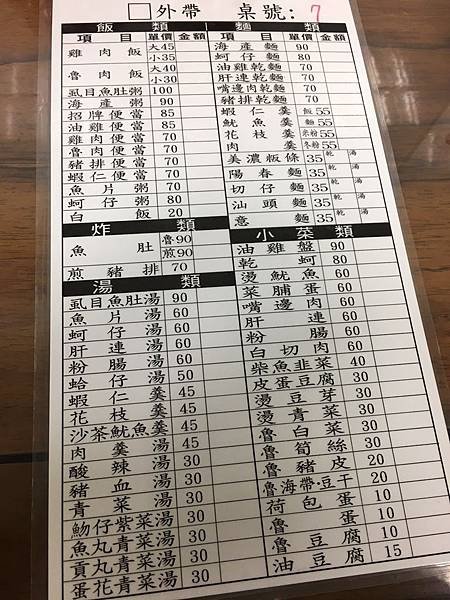 □外帶 桌號: 7
飯類
項目 單價 金額
雞肉飯 大45
小35
魯肉飯 大40
小30
虱目魚肚粥 100
海產粥 90
招牌便當 85
油雞便當 85
雞肉便當 70
魯肉便當 70
豬排便當 70
蝦仁便當 70
魚片粥 70
蚵仔粥 80
白飯 20
炸類
魚肚 魯90
煎90
煎豬排 70
湯類
虱目魚肚湯 90
魚片湯 60
蚵仔湯 60
肝連湯 60
粉腸湯 60
蛤仔湯 50
蝦仁羹 45
花枝羹 45
沙茶魷魚羹 45
肉羹湯 45
酸辣湯 30
豬血湯 30
青菜湯 30
魩仔紫菜湯 30
魚丸青菜湯 30
貢丸青菜湯 30
蛋花青菜湯 30
麵類
項目 單價 金額
海產麵 90
蚵仔麵 80
油雞乾麵 70
肝連乾麵 70
嘴邊肉乾麵 70
豬排乾麵 70
蝦仁羹 飯55
魷魚羹 麵55
花枝羹 米粉55
肉羹 冬粉55
美濃粄條 35 乾 湯
陽春麵 35 乾 湯
切仔麵 35 乾 湯
汕頭麵 35 乾 湯
意麵 35 乾 湯
小菜類
油雞盤 90
乾蚵 80
燙魷魚 60
菜脯蛋 60
嘴邊肉 60
肝連 60
粉腸 60
白切肉 60
柴魚韭菜 40
皮蛋豆腐 30
燙豆芽 30
燙青菜 30
魯白菜 30
魯筍絲 30
魯豬皮 20
魯海帶·豆干 20
荷包蛋 10
魯蛋 10
魯豆腐 10
油豆腐 15